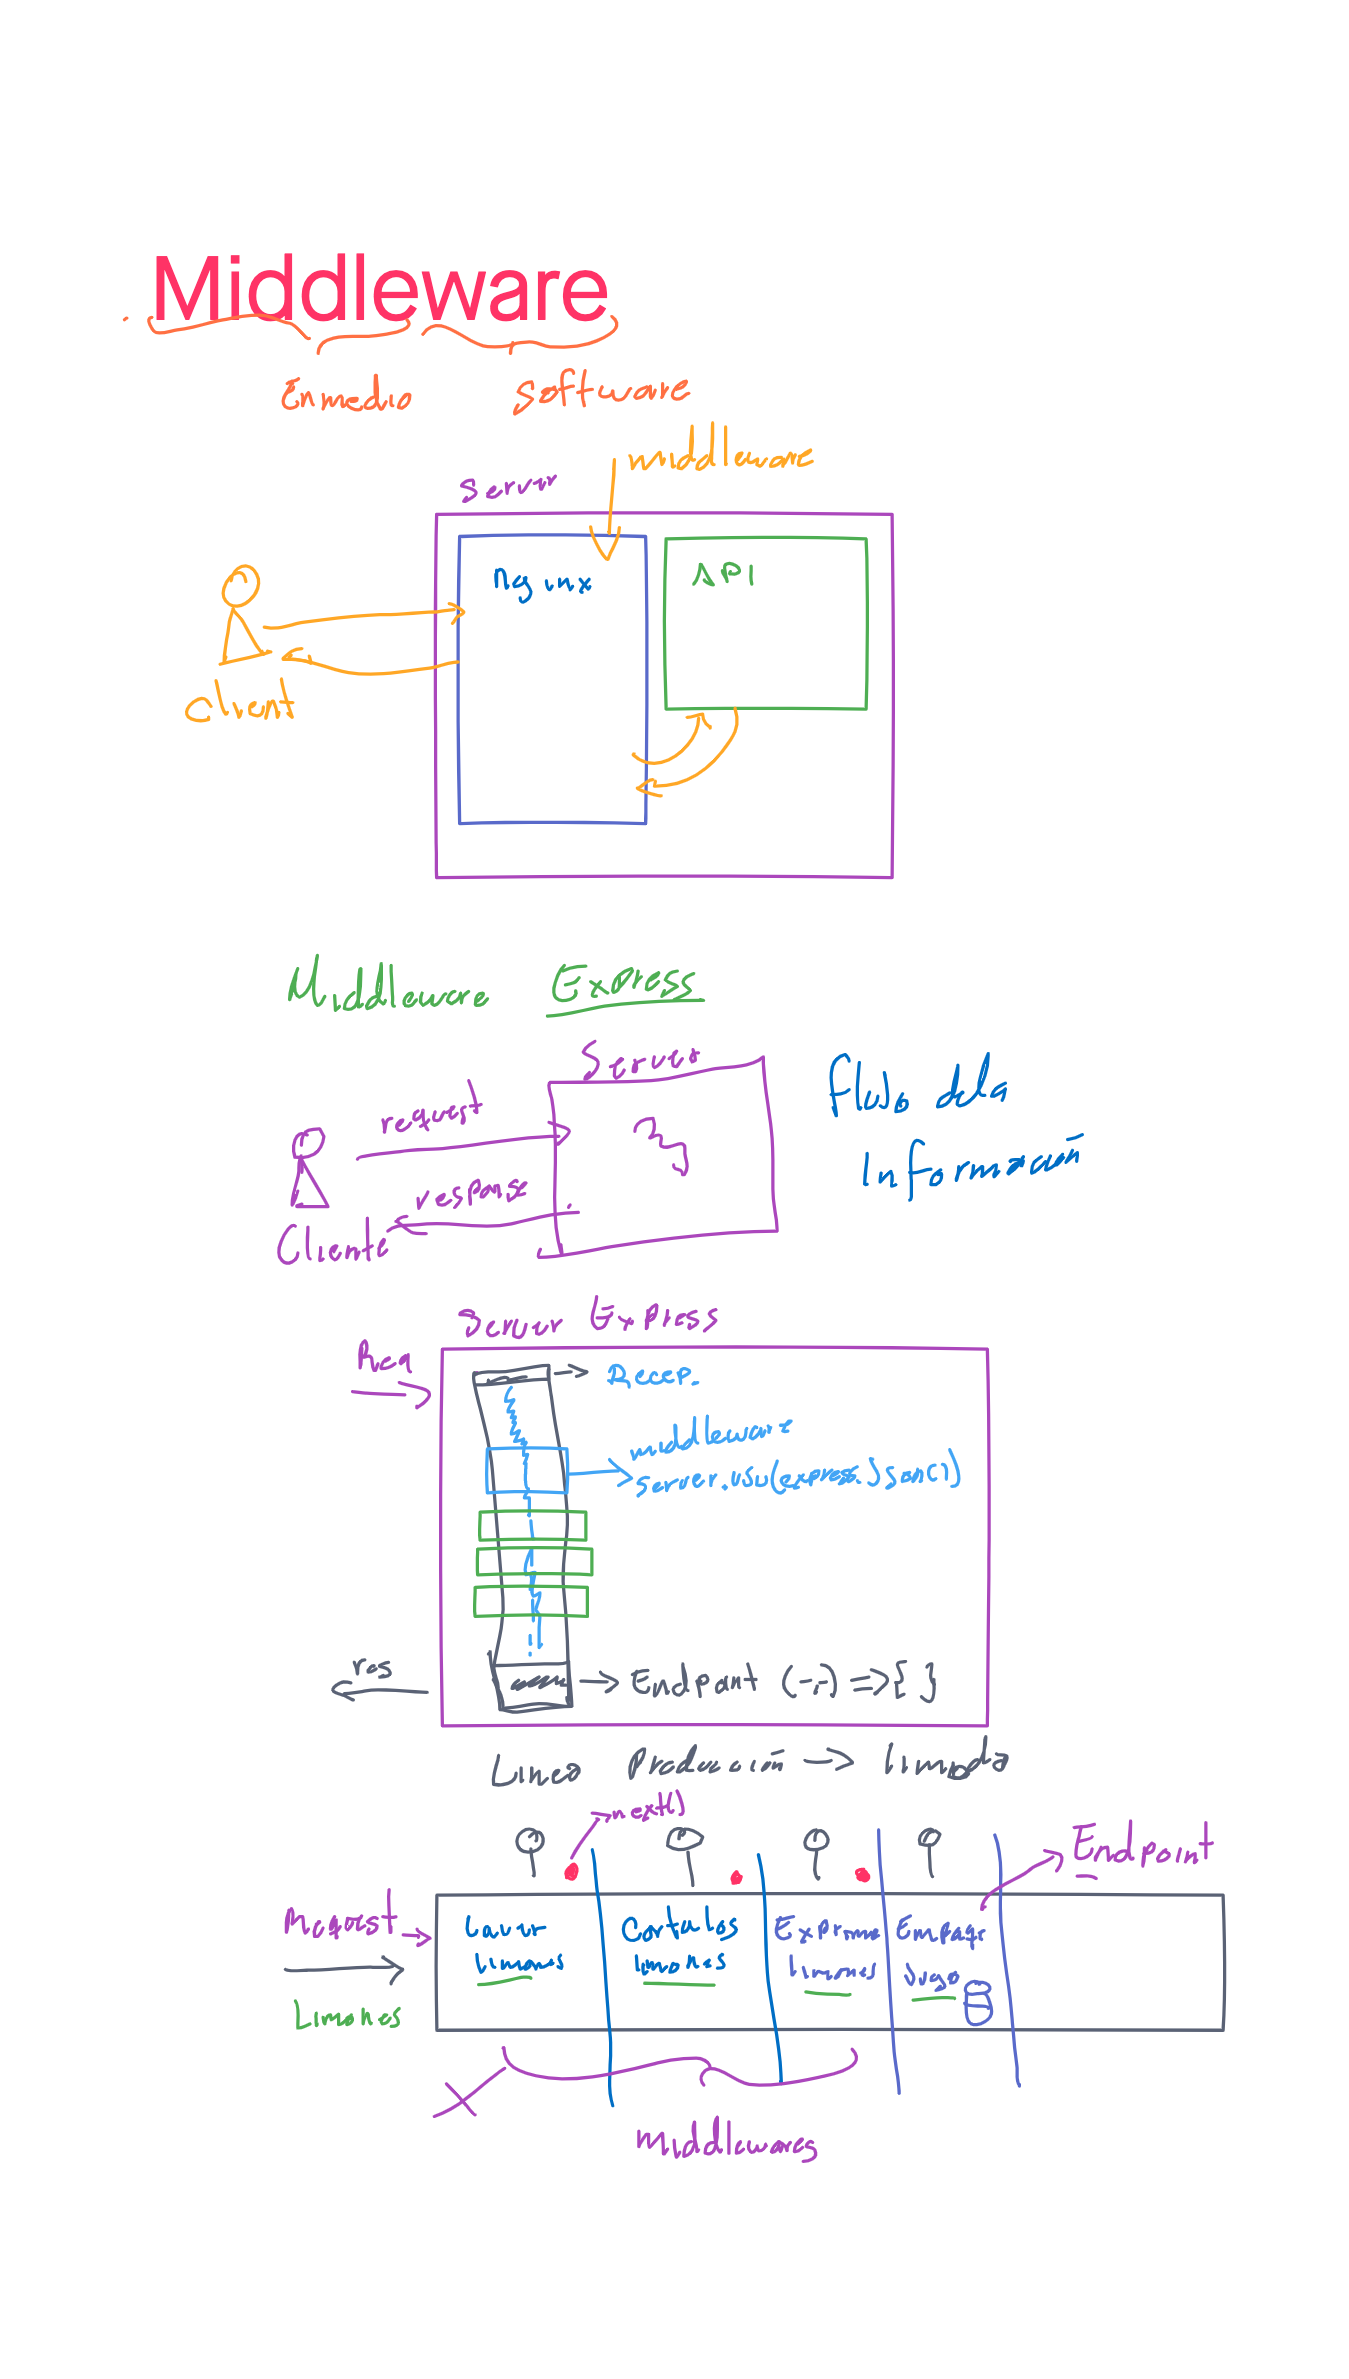 Middleware
Enmedio software
middleware
Server
Nginx API
client
Middleware Express
Server
request
response
Cliente
Flujo dela
Información
Server Express
Req
Recep.
middleware
server.use(express.Json())
res
Endpoint (-,-) => { }
Linea Producción → limonada
next()
Endpoint
Request
Limones
Lavar
limones
Cortalos
limones
Exprime
limones
Empaqe
Jugo
middlewares